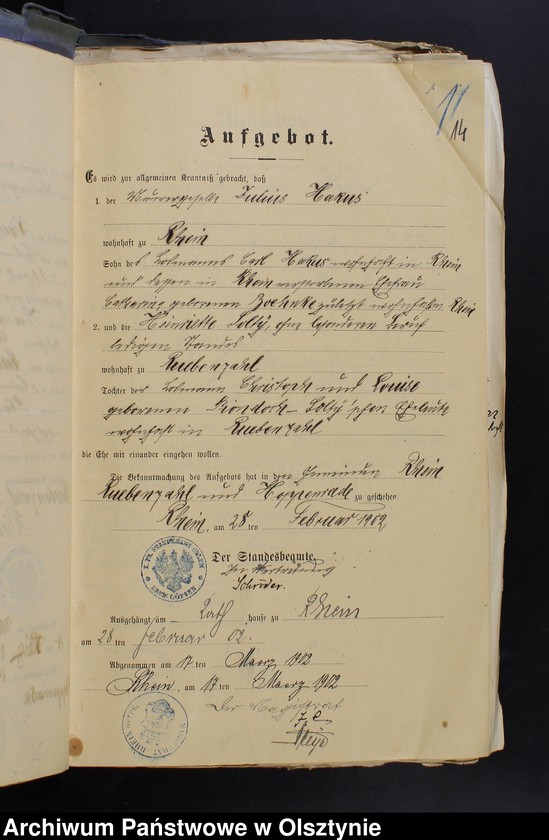 11
14
Aufgebot.
Es wird zur allgemeinen Kenntniß gebracht, daß
1. der Maurergeselle Julius Hakus
wohnhaft zu Rhein
Sohn des Losmanns Carl Hakus wohnhaft in Rhein
und dessen in Rhein verstorbenen Ehefrau
Catharina geborenen zuletzt wohnhaft in Rhein
2. und die Henriette Solty, ohne besonderen Beruf
ledigen Standes
wohnhaft zu Ruebenzahl
Tochter der Losmann Christoph und Louise
geborenen Piondoch-Solty'schen Eheleute
wohnhaft in Ruebenzahl
die Ehe mit einander eingehen wollen.
Die Bekanntmachung des Aufgebots hat in den Gemeinden Rhein
Ruebenzahl und Hoppenrade zu geschehen.
Rhein, am 28 ten Februar 1902
Der Standesbeamte.
In Vertretung
Schröder.
Ausgehängt am Rath hause zu Rhein
am 28 ten Februar 02.
Abgenommen am 17 ten Maerz 1902
Rhein, am 17 ten Maerz 1902
Der Magistrat
Archiwum Państwowe w Olsztynie